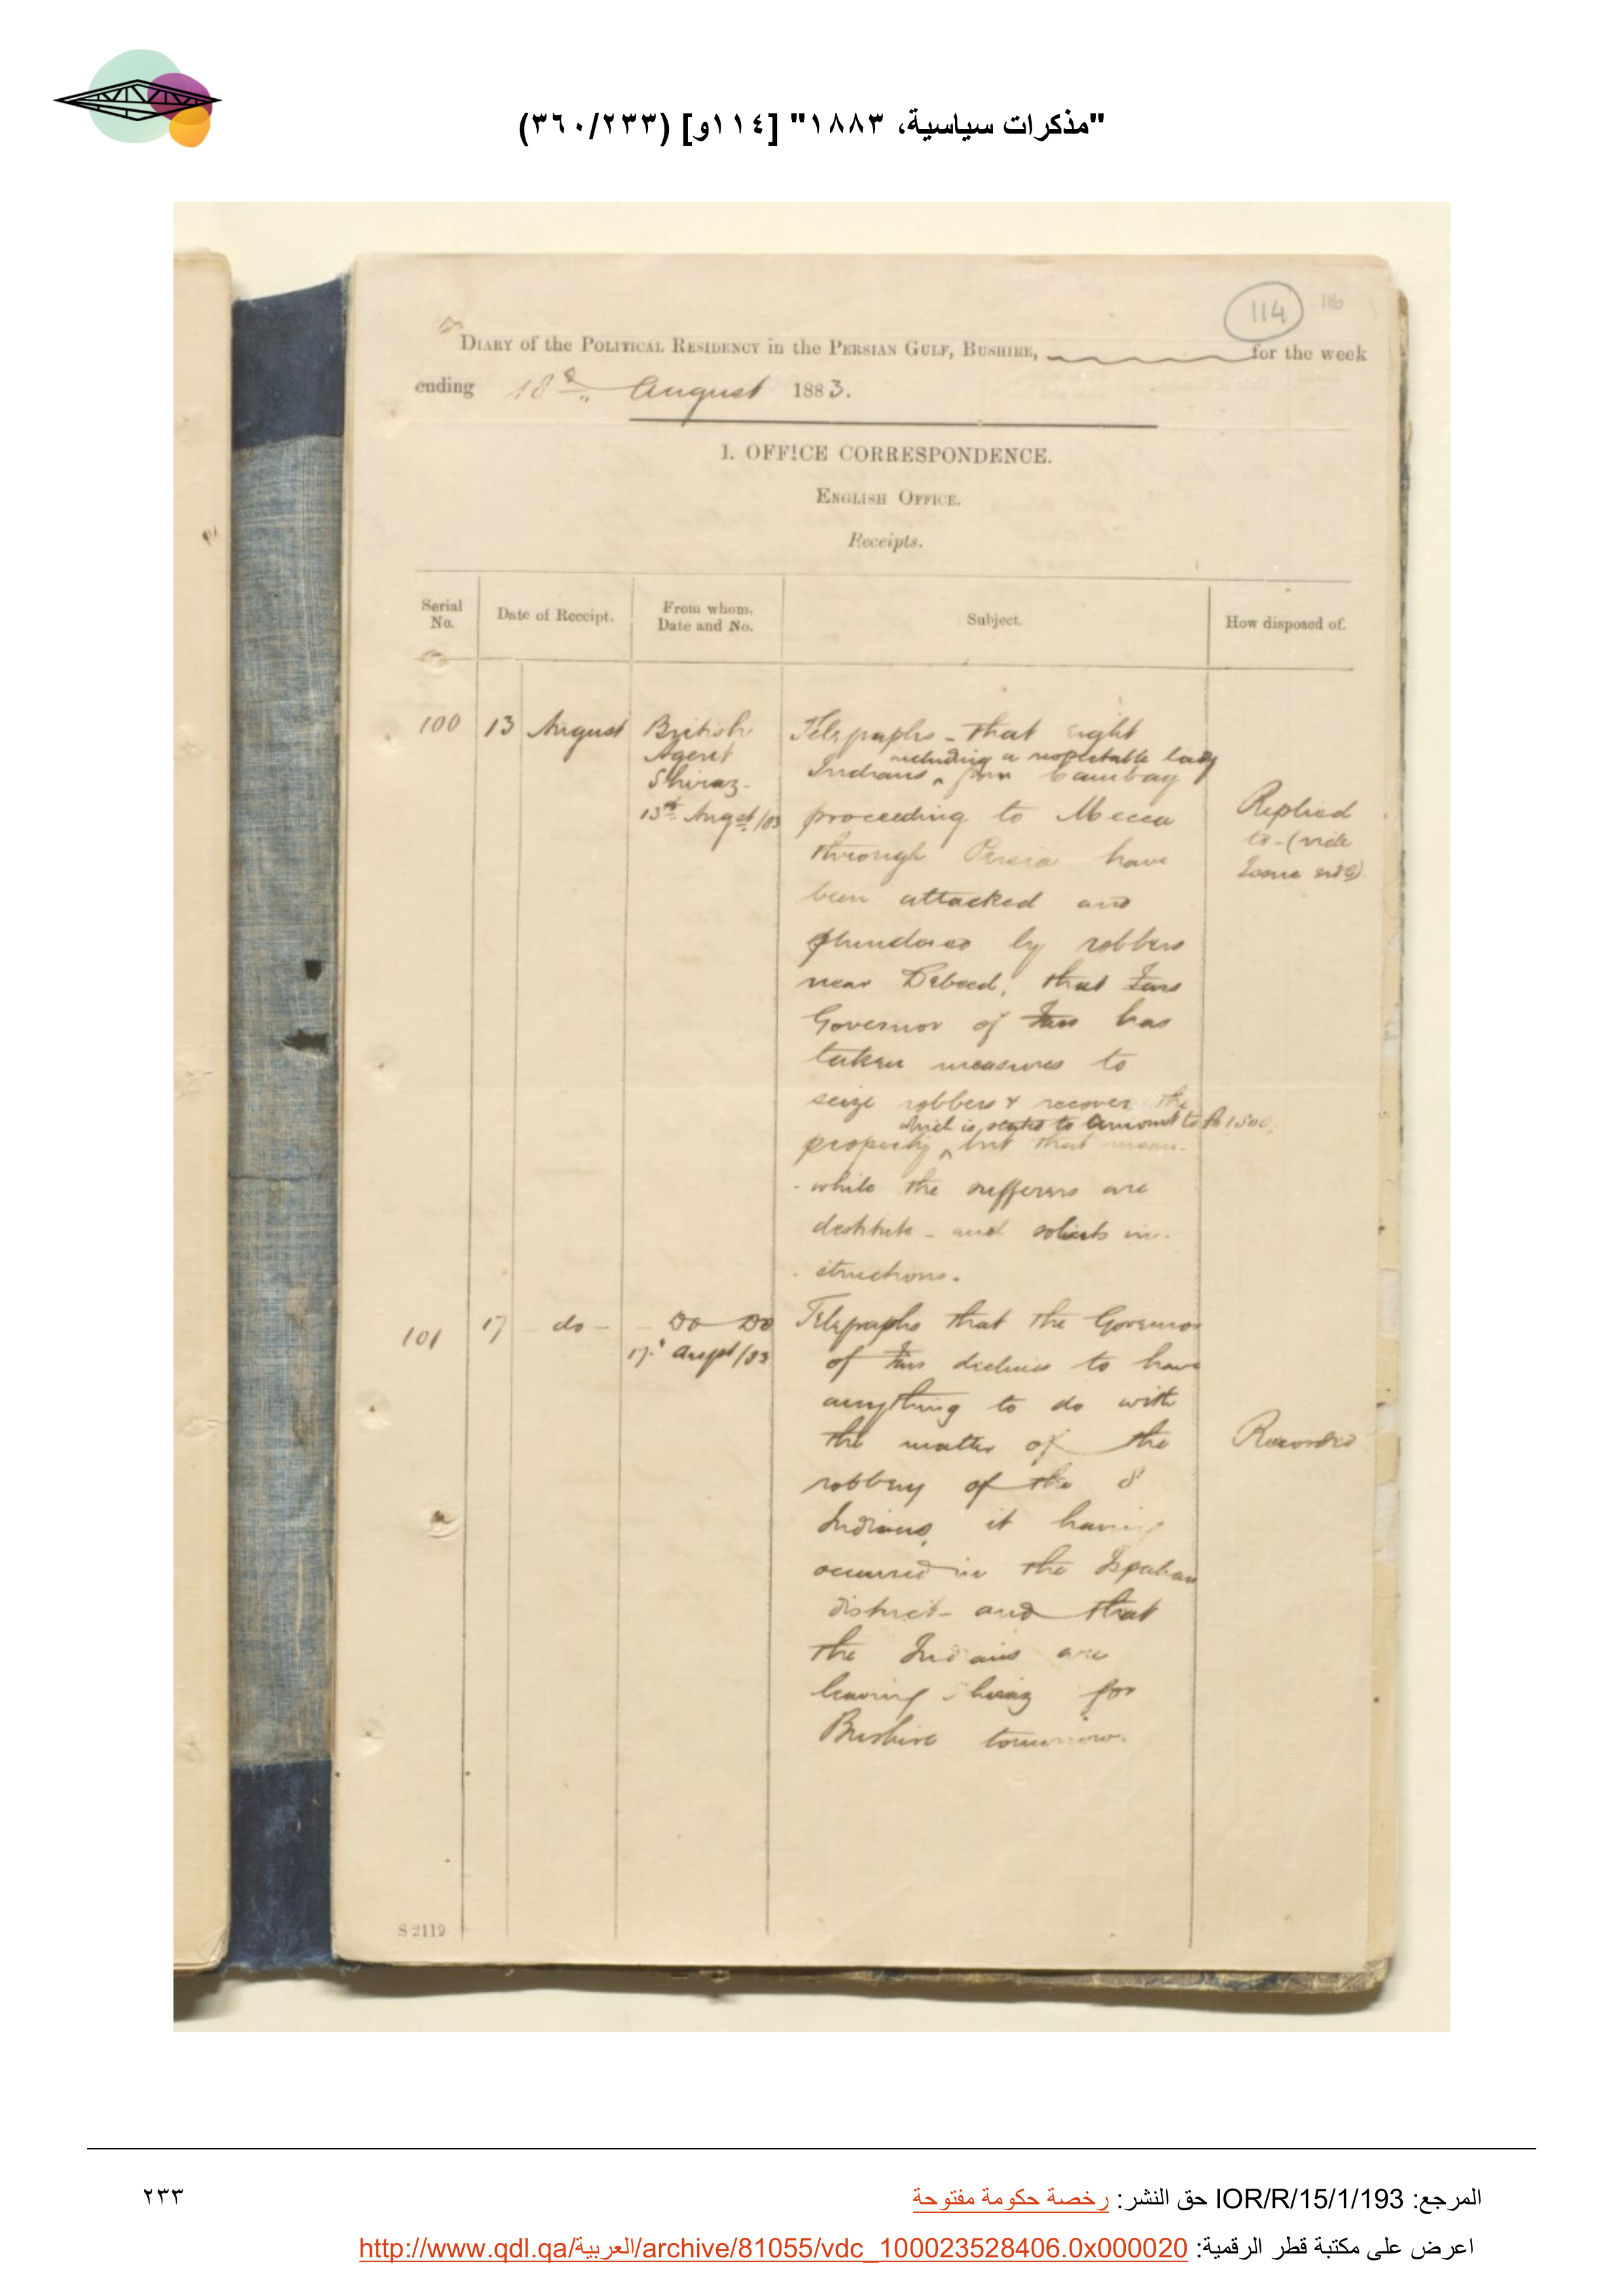 "مذكرات سياسية، ١٨٨٣" [١١٤و] (٣٦٠/٢٣٣)
114
116
DIARY of the POLITICAL RESIDENCY in the PERSIAN GULF, BUSHIRE, for the week
ending 18th August 1883.
I. OFFICE CORRESPONDENCE.
ENGLISH OFFICE.
Receipts.
Serial No.
Date of Receipt.
From whom. Date and No.
Subject.
How disposed of.
100
13 August
British
Agent
Shiraz.
13th Augst/83
Telegraphs - that eight
including a respectable lady
Indians from Cambay
proceeding to Mecca
through Persia have
been attacked and
plundered by robbers
near Debeed, that Fars
Governor of Fars has
taken measures to
seize robbers & recover the
which is stated to amount to Rs 1,800,
property but that mean-
- while the sufferers are
destitute - and solicits in-
- structions.
Replied
to - (vide
Issue side)
101
17 do -
Do Do
17 Augst/83
Telegraphs that the Governor
of Fars declines to have
anything to do with
the matter of the
robbery of the 8
Indians, it having
occurred in the Ispahan
district - and that
the Indians are
leaving Shiraz for
Bushire tomorrow.
Recorded
S 2119
المرجع: IOR/R/15/1/193 حق النشر: رخصة حكومة مفتوحة
٢٣٣
اعرض على مكتبة قطر الرقمية: http://www.qdl.qa/العربية/archive/81055/vdc_100023528406.0x000020